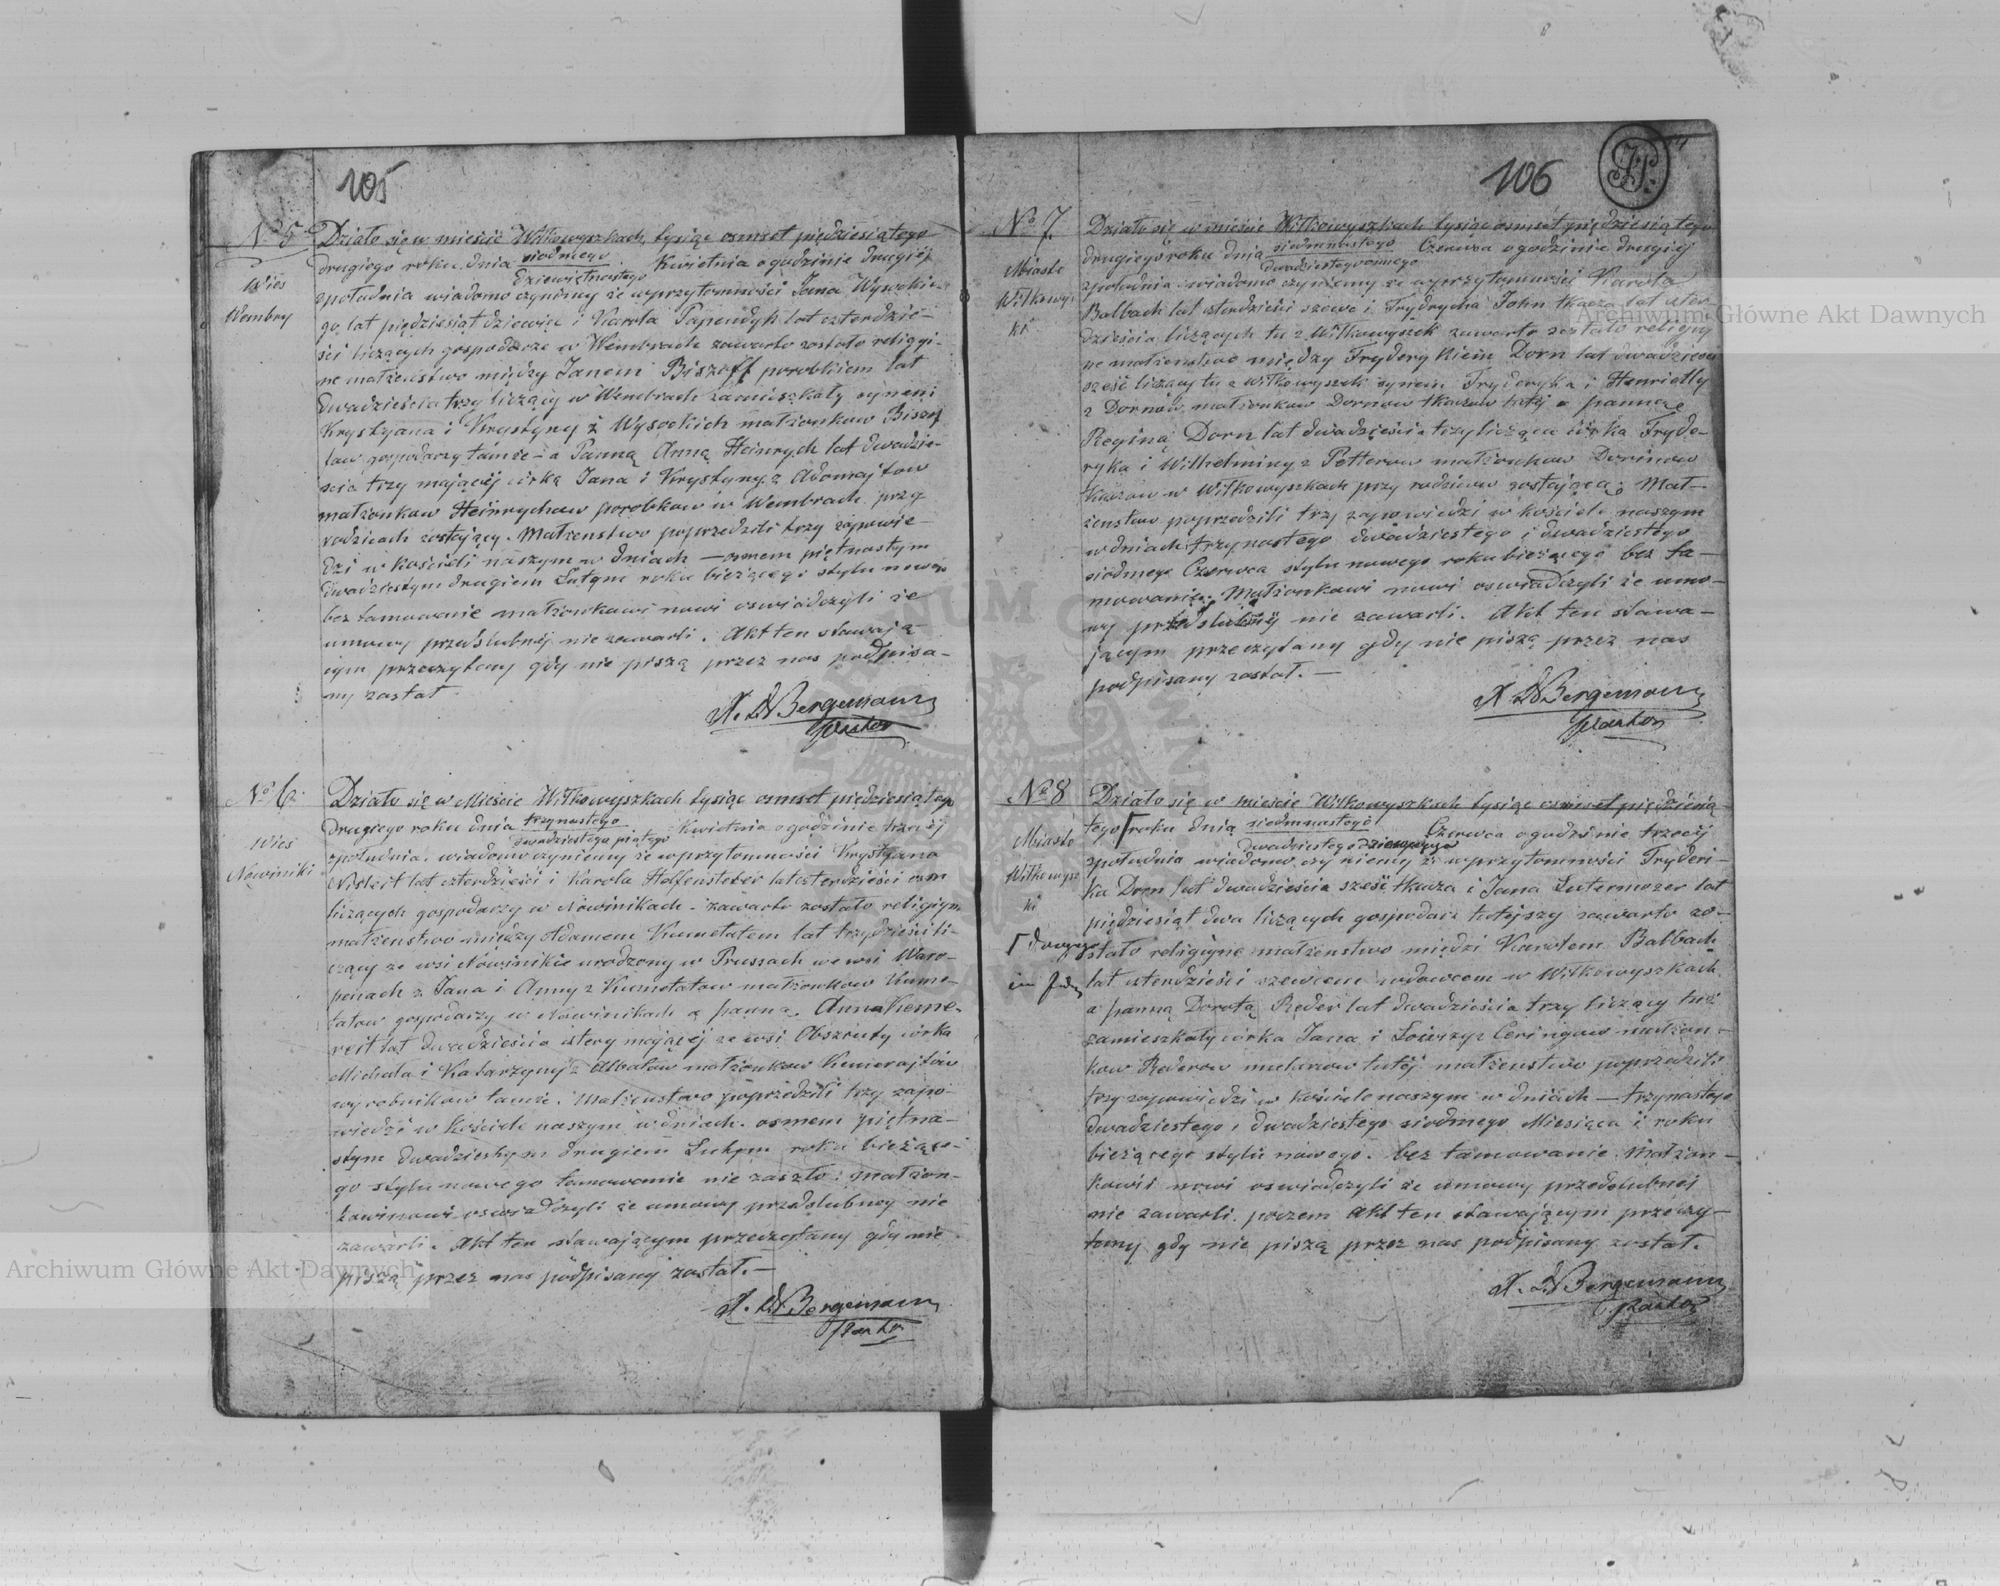 105
No 5
Wies
Wembry
Działo się w mieście Wiłkowyszkach tysiąc osmset pięćdziesiątego
drugiego roku dnia siodmego / Dziewiętnastego Kwietnia o godzinie drugiéj
zpołudnia wiadomo czynimy że w przytomności Jana Wysockie-
go lat pięćdziesiąt dziewięć i Karola Papendyk lat czterdzie-
ści liczących gospodarze w Wembrach zawarte zostało religij-
ne małżeństwo między Janem Biszoff parobkiem lat
dwadzieścia trzy liczący w Wembrach zamieszkały synem
Krystyana i Krystyny z Wysockich małżonkow Biszof
fow gospodarzy tamże - a Panną Anną Heinrych lat dwadzie-
ścia trzy mającéj córką Jana i Krystyny z Adomajtow
małżonkow Heinrychow parobkow w Wembrach przy
rodzicach zostający. Małżenstwo poprzedzili trzy zapowie-
dzi w kościeli naszym w dniach — osmem piętnastym
dwudziestym drugiem Lutym roku bieżącego stylu nowego
bez tamowanie małżonkowi nowi oswiadczyli że
umowy przedślubnéj nie zawarli. Akt ten stawają-
cym przeczytany gdy nie piszą przez nas podpisa-
ny został
X. Bergemann
Pastor
No 6
Wies
Nowiniki
Działo się w Mieście Wiłkowyszkach tysiąc osmset pięćdziesiątego
drugiego roku dnia trzynastego / dwudziestego piątego Kwietnia o godzinie trzeciéj
zpołudnia. wiadomo czyniemy że w przytomności Krystyana
lat czterdzieści i Karola Holfensteler lat czterdzieści osm
liczących gospodarzy w Nowinikach - zawarte zostało religijne
małżenstwo między Adamem Kumetatem lat trzydzieści li-
czący ze wsi Nowinikie urodzony w Prussach we wsi Waro-
penach z Jana i Anny z Kumetatow małżonkow Kume-
tatow gospodarzy w Nowinikach a panną Anna Keme-
reit lat dwadzieścia cztery mającéj ze wsi Obszruty córka
Michała i Katarzyny z Albatow małżonkow Kemerajtów
wyrobnikow tamże. Małżenstwo poprzedzili trzy zapo-
wiedzi w kościeli naszym w dniach. osmem piętna-
stym dwudziestym drugiem Lutym roku bieżące-
go stylu nowego tamowanie nie zaszło: małżon-
kowi nowi oswiadczyli że umowy przedslubnéj nie
zawarli. Akt ten stawającym przeczytany gdy nie
piszą przez nas podpisany został. —
X. Bergemann
Pastor
106
No 7
Miasto
Wiłkowysz
ki
Działo się w mieście Wiłkowyszkach tysiąc osmset pięćdziesiątego
drugiego roku dnia siedmnastego / dwudziestego osmego Czerwca o godzinie drugiéj
zpołudnia. wiadomo czyniemy że w przytomności Karola
Balbach lat cterdzieści szewc i Frydrycha John tkacza lat cter-
dzieścia liczących tu z Wiłkowyszek zawarte zostało religij
ne małżenstwo między Fryderykiem Dorn lat dwadzieścia
sześć liczący tu z Wiłkowyszek synem Fryderyka i Henrietty
z Dornów małżonkow Dornow tkaczow tutéj a panną
Reginą Dorn lat dwadzieścia trzy licząca córka Fryde-
ryka i Wilhelminy z Petterow małżonkow Dornow
tkaczow w Wiłkowyszkach przy rodzicow zostającą; Mał-
żenstwo poprzedzili trzy zapowiedzi w kościele naszym
w dniach trzynastego dwudziestego i dwudziestego
siodmego Czerwca stylu nowego roku bieżącego bez ta-
mowanie: Małżonkowi nowi oswiadczyli że umo-
wy przedslubnéj nie zawarli. Akt ten stawa-
jącym przeczytany gdy nie piszą przez nas
podpisany został. —
X. Bergemann
Pastor
No 8
Miasto
Wiłkowysz
ki
Działo się w mieście Wiłkowyszkach tysiąc osmset pięćdziesią-
tego ⌈ roku dnia siedmnastego / dwudziestego dziewiątego Czerwca o godzinie trzeciéj
zpołudnia wiadomo czyniemy że w przytomności Fryderi-
ka Dorn lat dwadzieścia sześć tkacza i Jana Lutermozer lat
pięćdziesiąt dwa liczących gospodarz tutéjszy zawarte zo-
⌈ drugego
stało religijne małżenstwo międzi Karolem Balbach
lat cterdzieści szewcem wdowcem w Wiłkowyszkach
a panną Dorotą Reder lat dwadzieścia trzy liczący tu
zamieszkały córka Jana i Lowizy z Ceringow małżon-
kow Rederow mularzow tutéj małżenstwo poprzedzili
trzy zapowiedzi w kościele naszym w dniach — trzynastego
dwudziestego i dwudziestego siodmego Miesiąca i roku
bieżącego stylu nowego. bez tamowanie. Małżon-
kowie nowi oswiadczyli że umowy przedslubnéj
nie zawarli. poczem Akt ten stawającym przeczy-
tany gdy nie piszą przez nas podpisany został.
X. Bergemann
Pastor
Archiwum Główne Akt Dawnych
Archiwum Główne Akt Dawnych